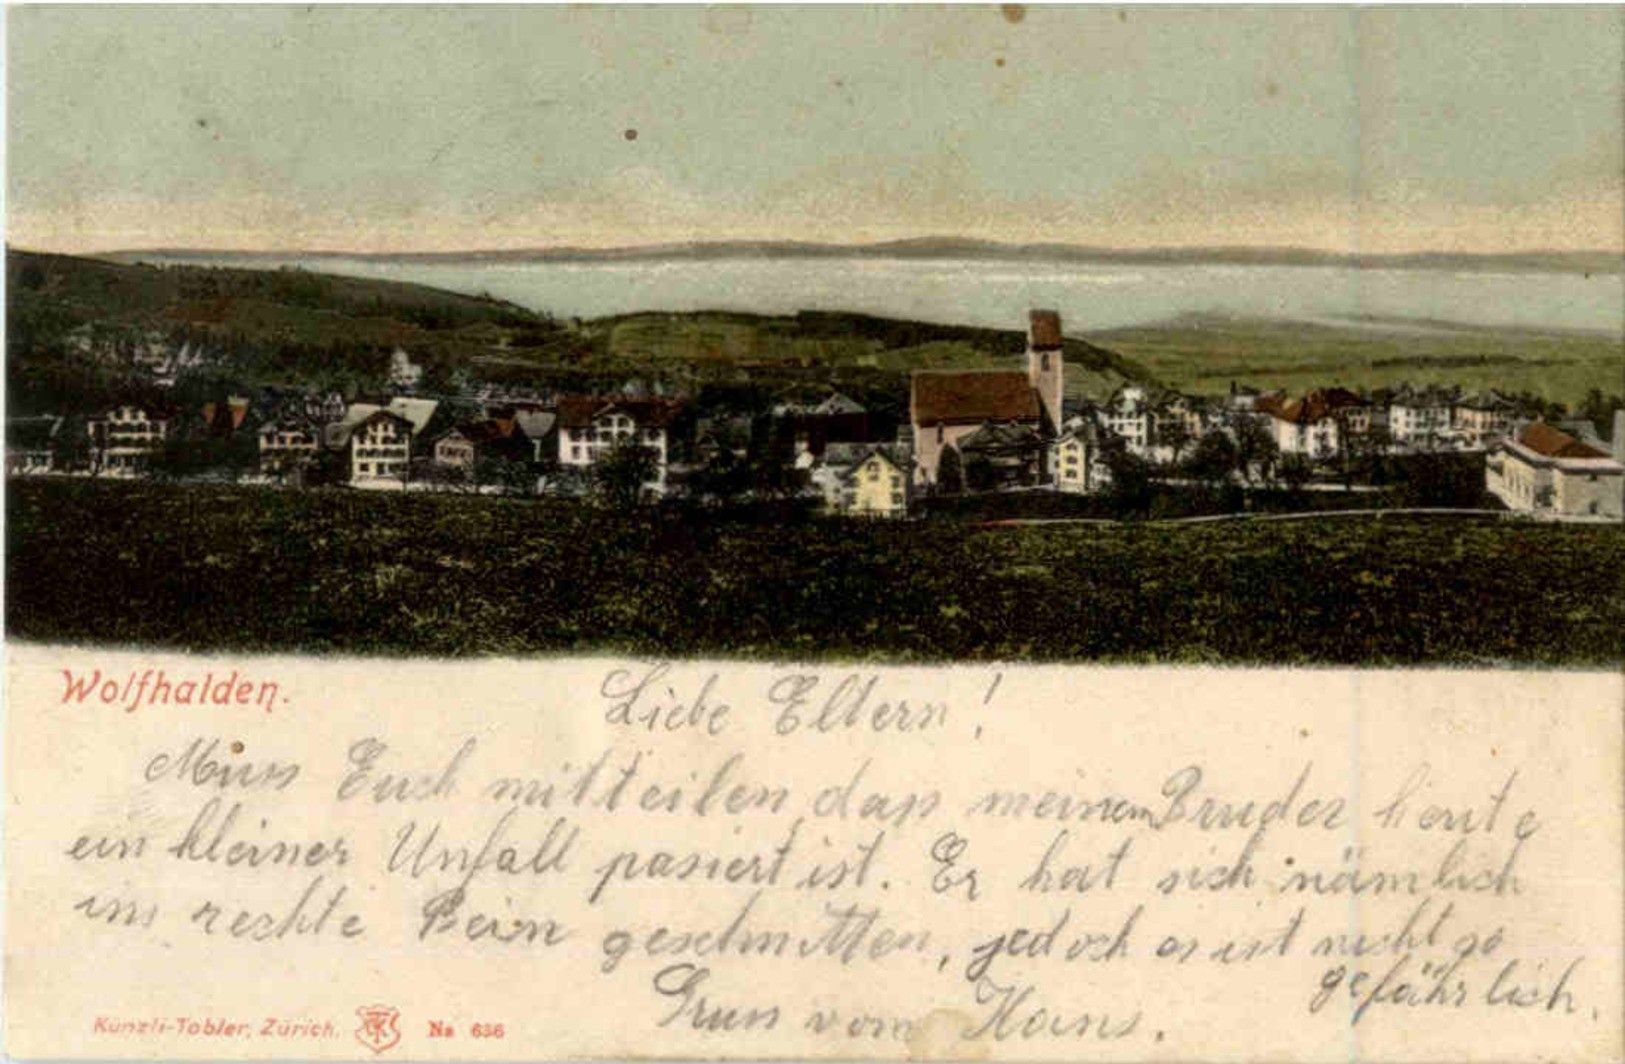 Wolfhalden.
Liebe Eltern!
Muss Euch mitteilen dass meinem Bruder heute
ein kleiner Unfall pasiert ist. Er hat sich nämlich
ins rechte Bein geschnitten, jedoch es ist nicht so
gefährlich.
Gruss vom Hans.
Künzli-Tobler, Zürich. No 636